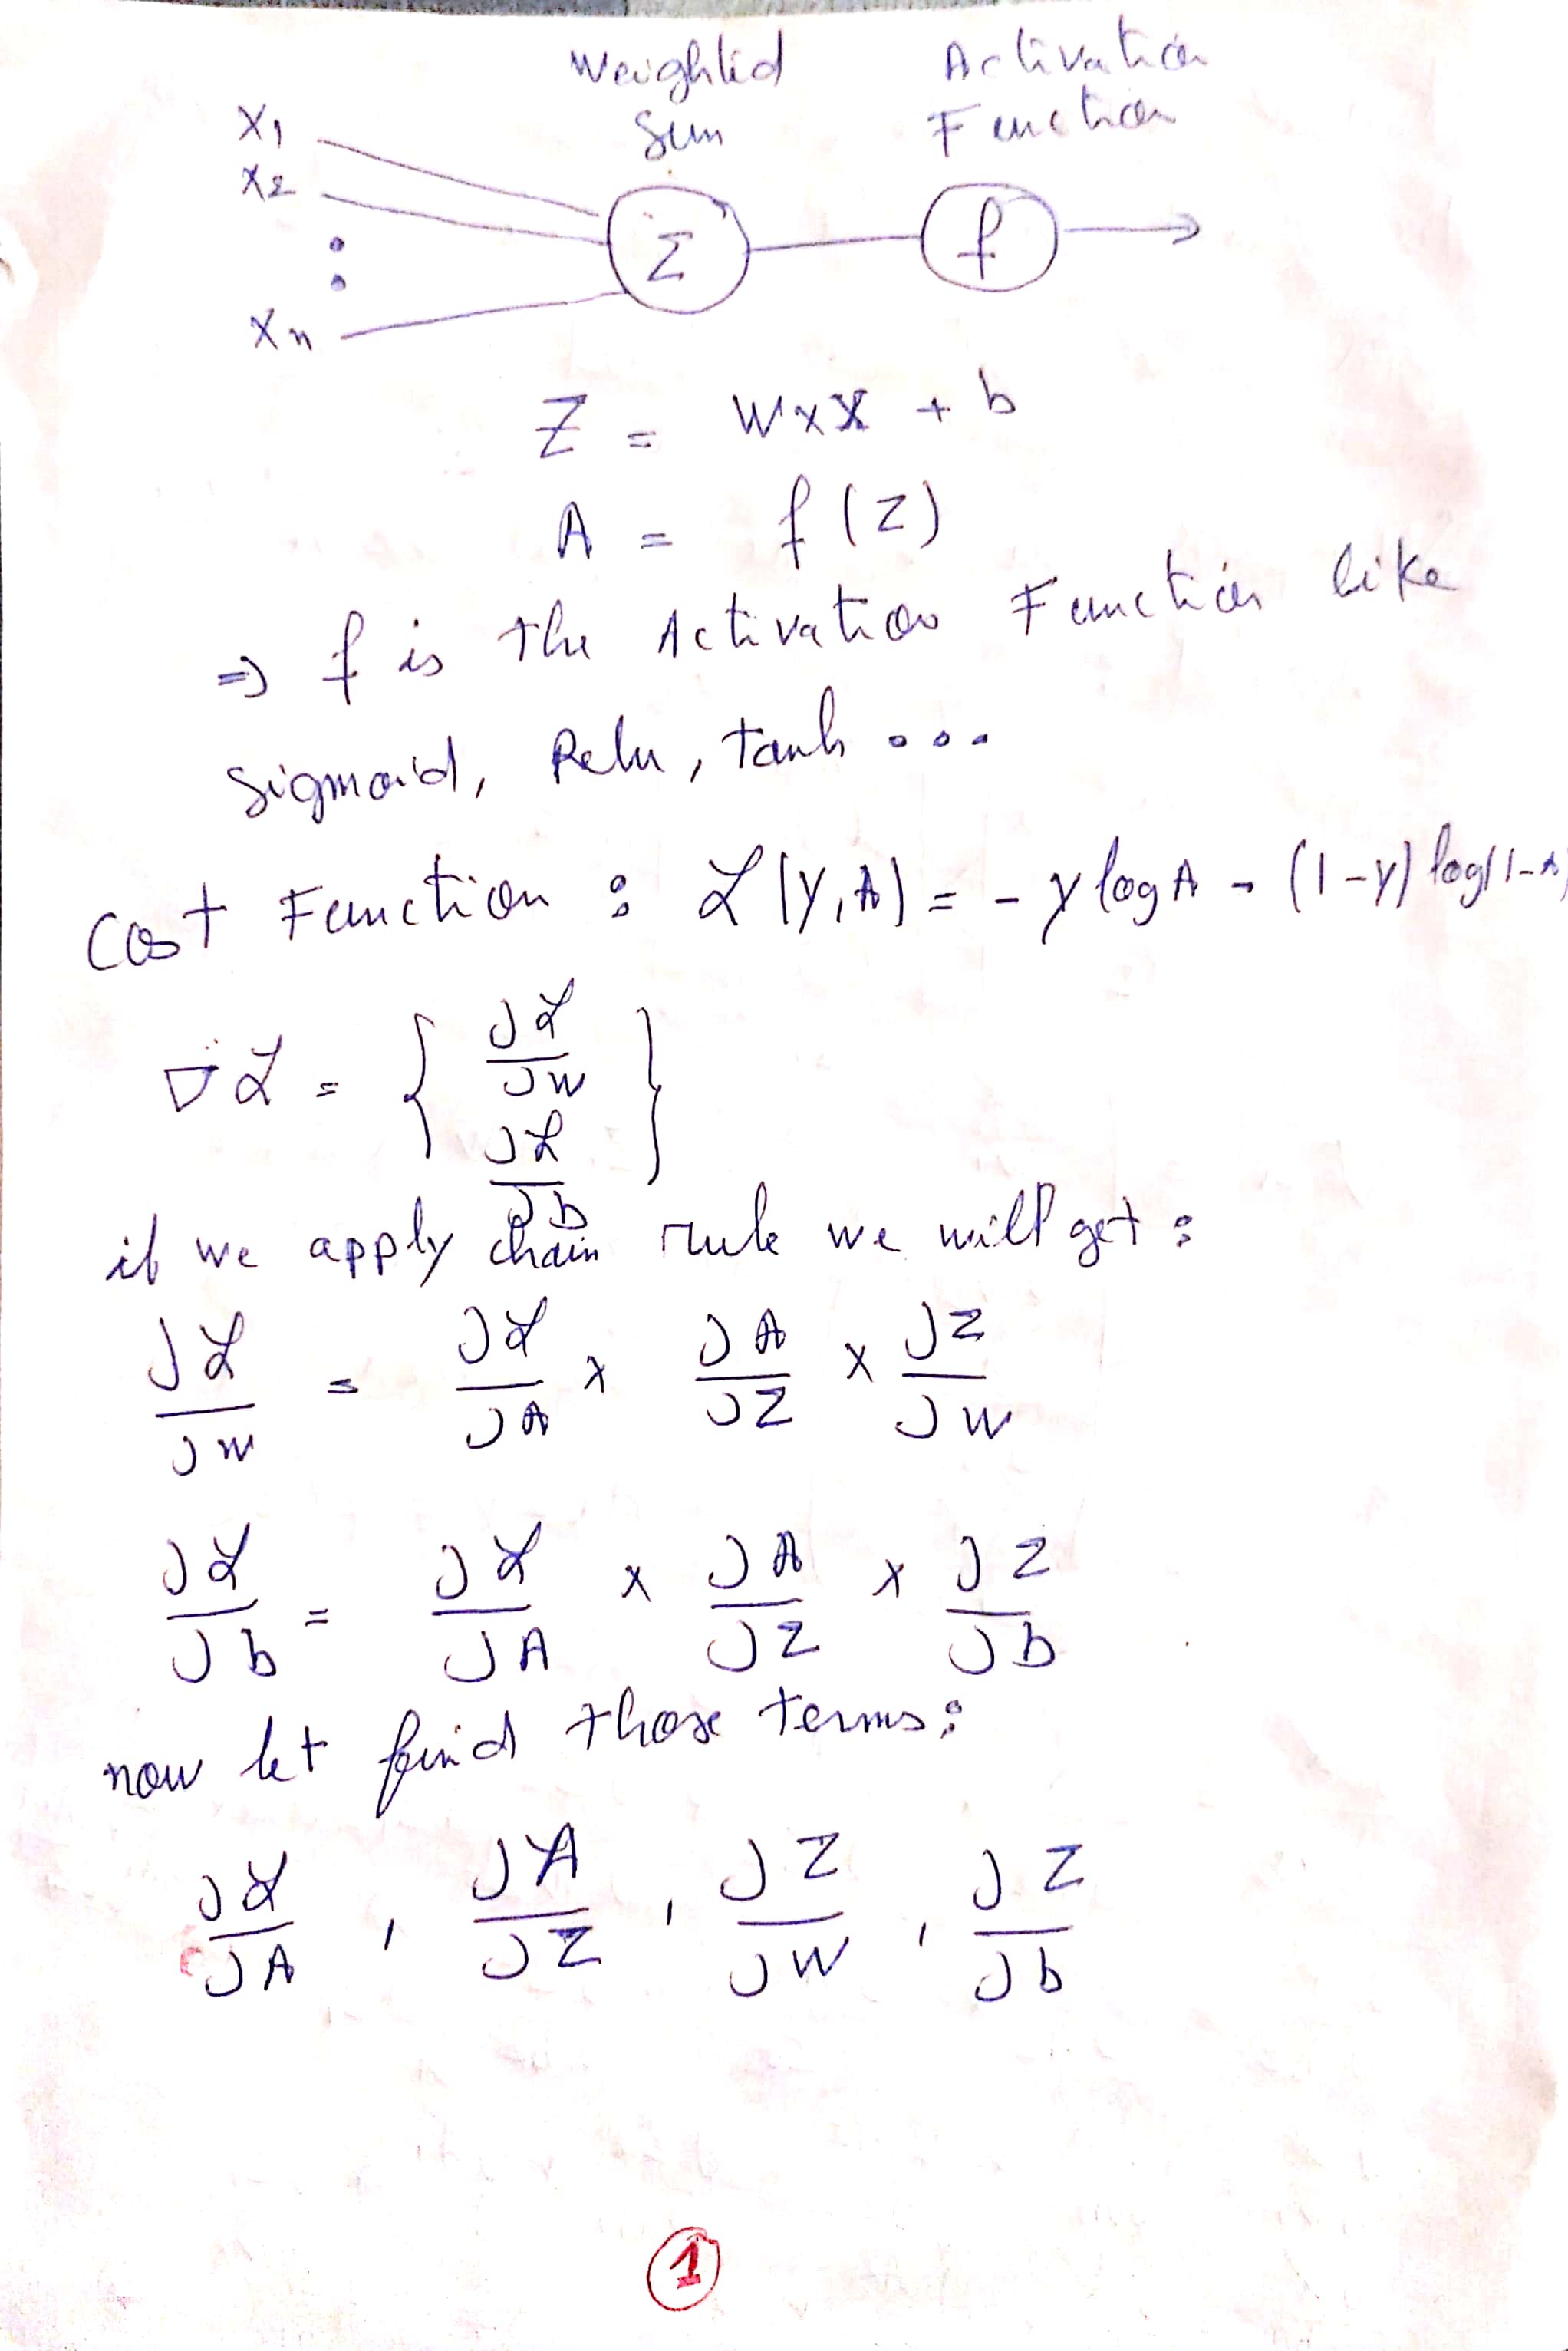 Weighted Activation
Sum Function
X1
X2
Σ f
Xn
Z = W x X + b
A = f(Z)
=> f is the Activation Function like
sigmoid, Relu, tanh ...
Cost Function : ℒ(Y,A) = - Y log A - (1-Y) log(1-A)
∇ℒ = { ∂ℒ/∂W
∂ℒ/∂b }
if we apply chain rule we will get :
∂ℒ/∂W = ∂ℒ/∂A x ∂A/∂Z x ∂Z/∂W
∂ℒ/∂b = ∂ℒ/∂A x ∂A/∂Z x ∂Z/∂b
now let find those terms :
∂ℒ/∂A , ∂A/∂Z , ∂Z/∂W , ∂Z/∂b
1